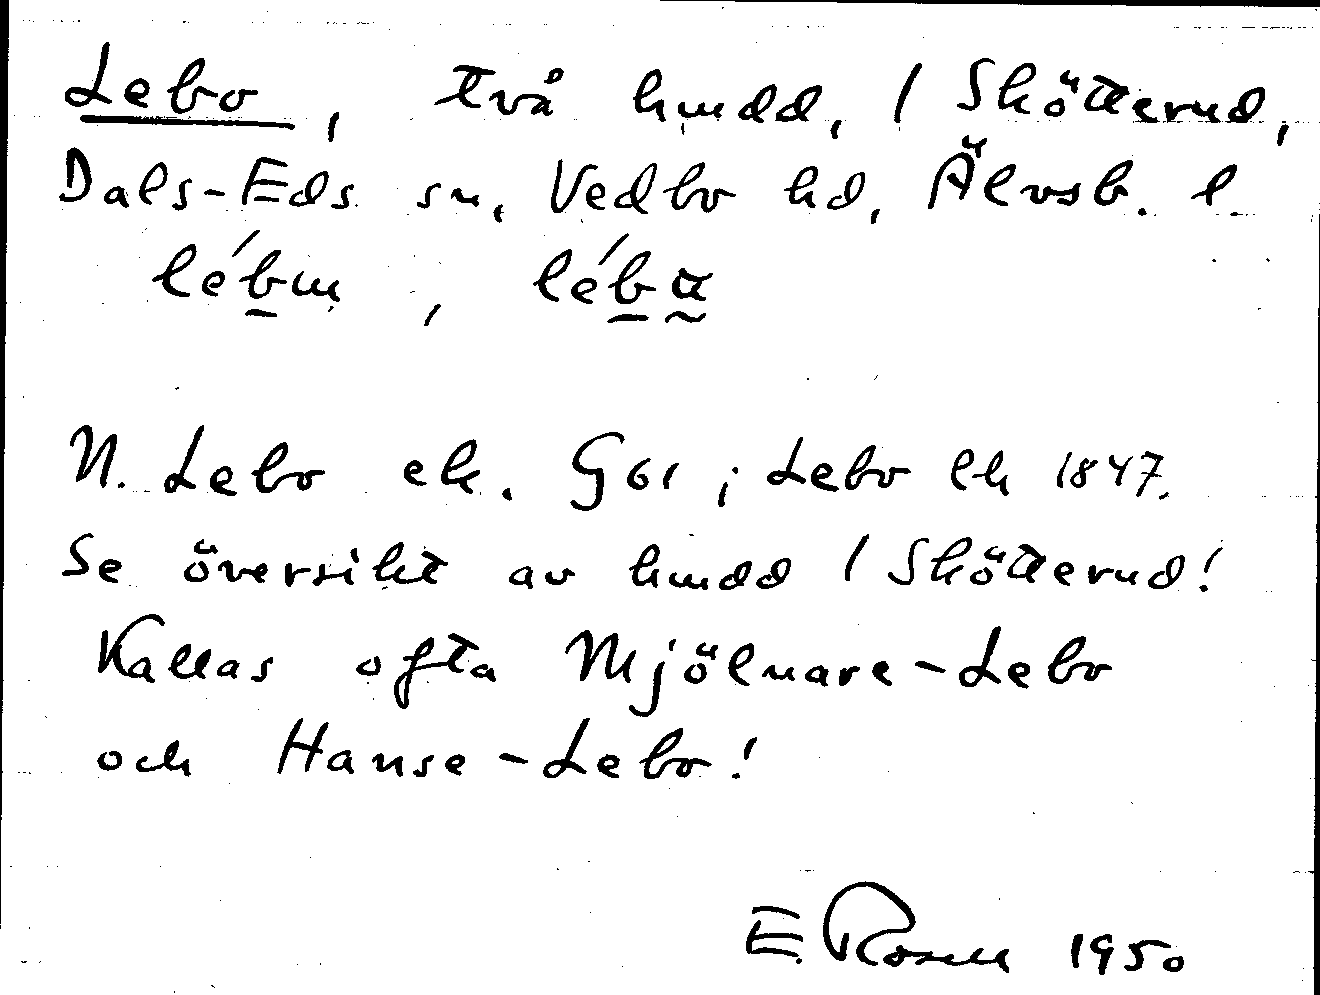 Lebo, två hmdd, / Skötterud,
Dals-Eds sn, Vedbo hd, Älvsb. l.
lébm, léba
N. Lebo ek. G 61; Lebo lk 1847.
Se översikt av hmdd / Skötterud!
Kallas ofta Mjölnare-Lebo
och Hanse-Lebo!
E. Rosell 1950